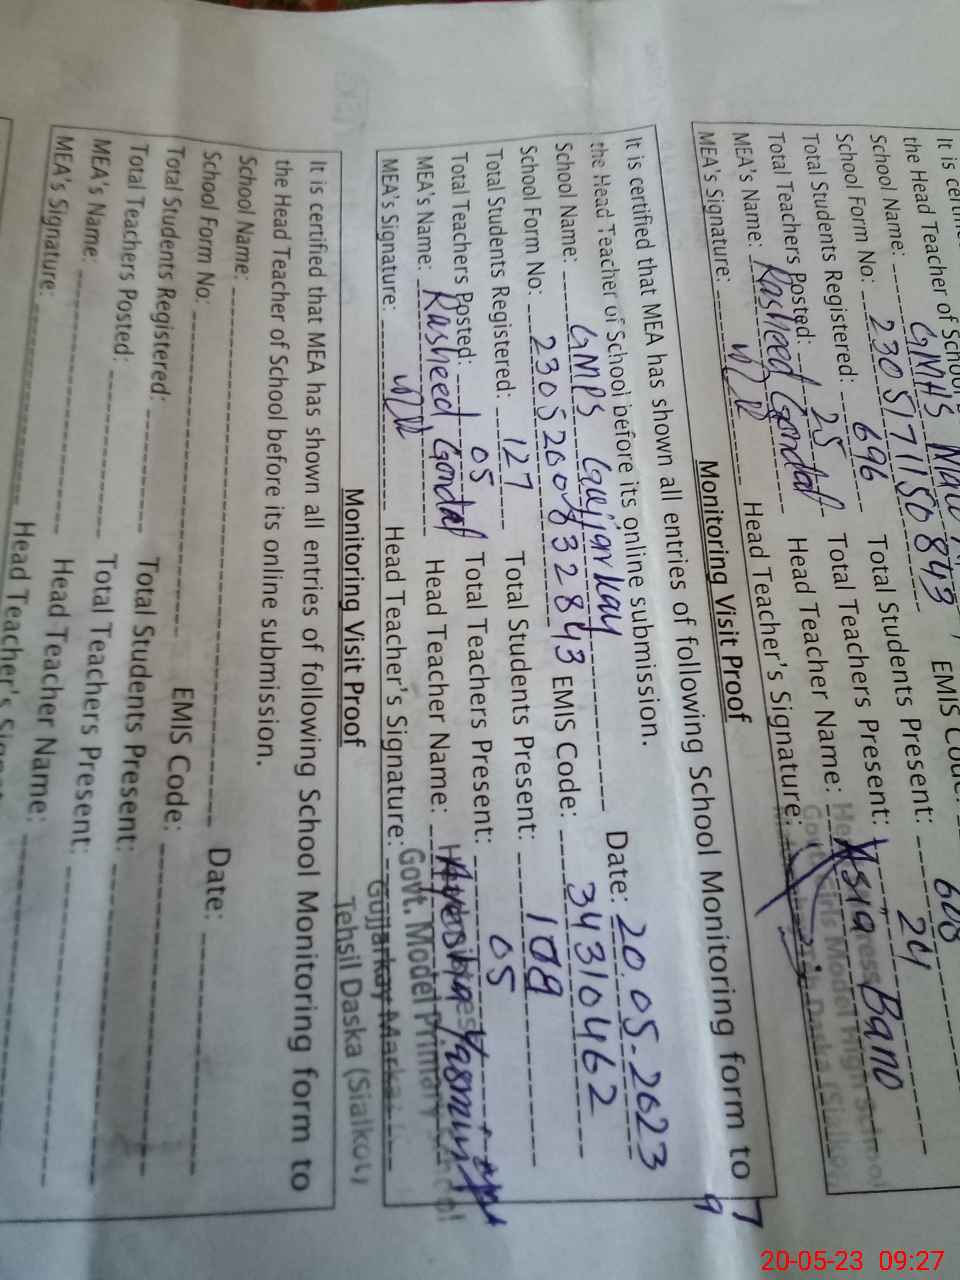 the Head Teacher of School
School Name: GMHS
School Form No: 23051771150843 EMIS Code: 
Total Students Registered: 696 Total Students Present: 608
Total Teachers Posted: 25 Total Teachers Present: 24
MEA's Name: Rasheed Gondal Head Teacher Name: Asia Bano
MEA's Signature: Head Teacher's Signature:
Monitoring Visit Proof
It is certified that MEA has shown all entries of following School Monitoring form to
the Head Teacher of School before its online submission.
School Name: GMPS Gujjarkay Date: 20.05-2023
School Form No: 2305200832843 EMIS Code: 34310462
Total Students Registered: 127 Total Students Present: 109
Total Teachers Posted: 05 Total Teachers Present: 05
MEA's Name: Rasheed Gondal Head Teacher Name: Ayesha Yasmin
MEA's Signature: Head Teacher's Signature:
Govt. Model Primary School
Gujjarkay Markaz
Tehsil Daska (Sialkot)
Monitoring Visit Proof
It is certified that MEA has shown all entries of following School Monitoring form to
the Head Teacher of School before its online submission.
School Name: Date:
School Form No: EMIS Code:
Total Students Registered: Total Students Present:
Total Teachers Posted: Total Teachers Present:
MEA's Name: Head Teacher Name:
MEA's Signature: Head Teacher's
20-05-23 09:27